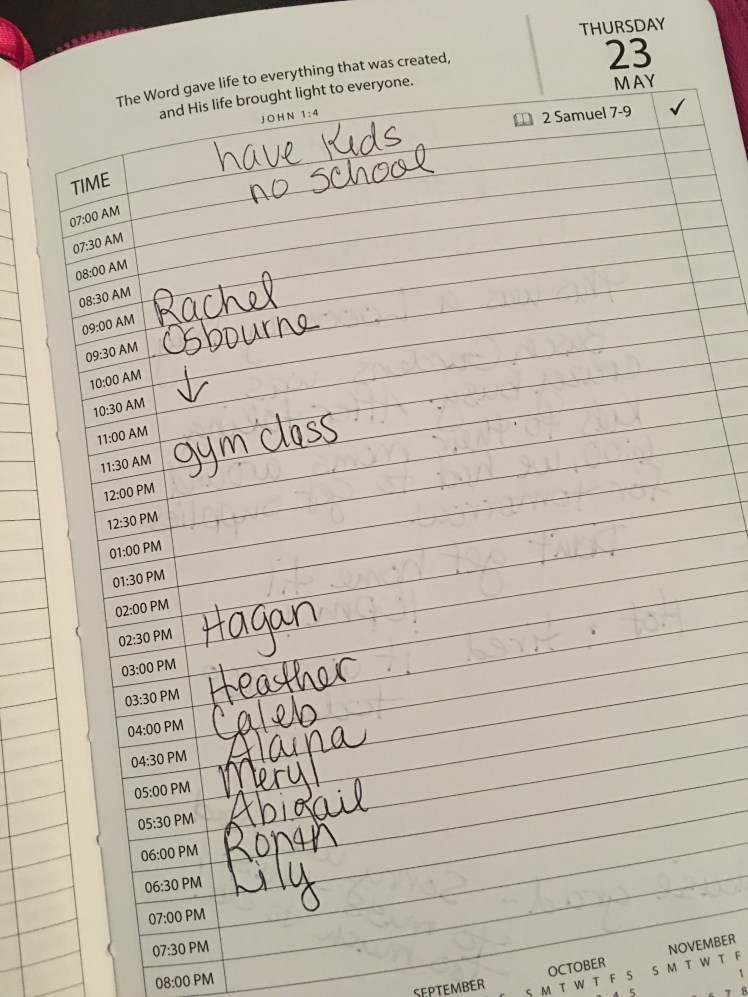 THURSDAY
23
MAY
The Word gave life to everything that was created,
and His life brought light to everyone.
JOHN 1:4
2 Samuel 7-9 ✓
TIME have kids
no school
07:00 AM
07:30 AM
08:00 AM
08:30 AM
09:00 AM Rachel
09:30 AM Osbourne
10:00 AM
10:30 AM ↓
11:00 AM
11:30 AM gym class
12:00 PM
12:30 PM
01:00 PM
01:30 PM
02:00 PM
02:30 PM Hagan
03:00 PM
03:30 PM Heather
04:00 PM Caleb
04:30 PM Alaina
05:00 PM Meryl
05:30 PM Abigail
06:00 PM Ronan
06:30 PM Lily
07:00 PM
07:30 PM
08:00 PM
SEPTEMBER OCTOBER NOVEMBER
S M T W T F S S M T W T F